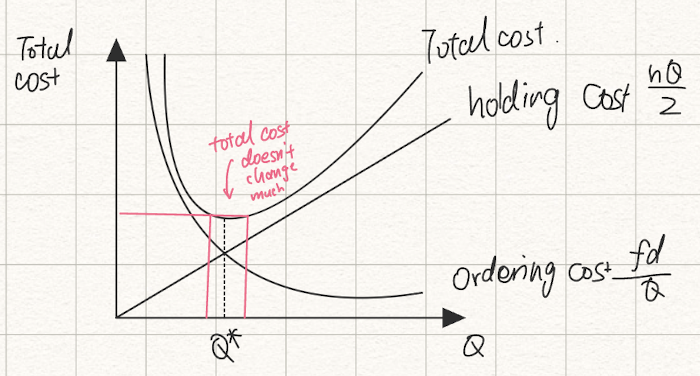 Total
cost
Total cost.
holding cost hQ/2
total cost
doesn't
change
much
ordering cost fd/Q
Q*
Q